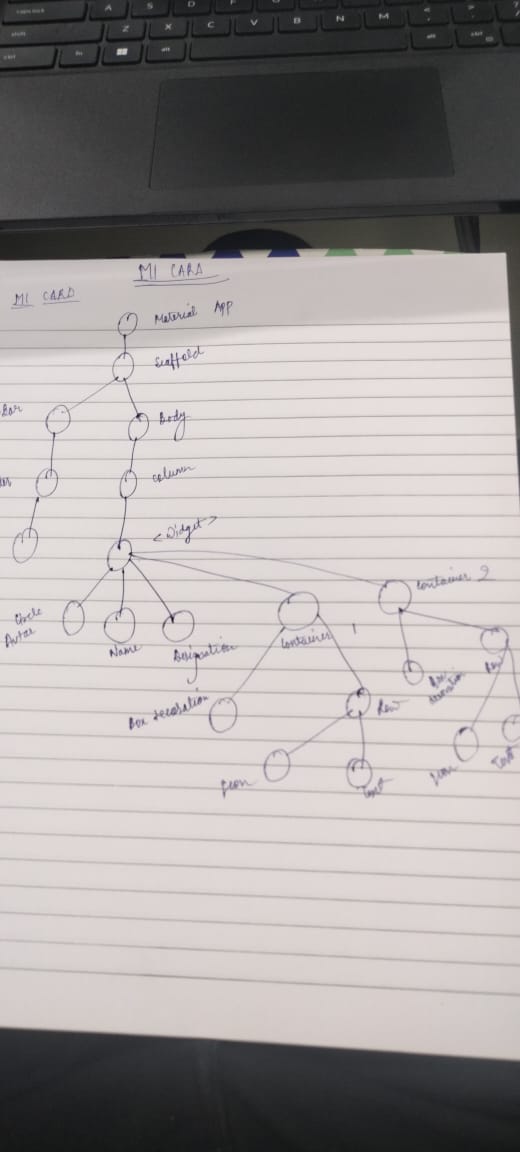 A S D
Z X C V B N M
fn alt alt ctrl
MI CARD
MI CARD
Material App
Scaffold
Bar
Body
column
<Widget>
Circle
Avtar
Name
Designation
Container 1
Container 2
Box decoration
Row
Icon
Text
Box
decoration
Row
Icon
Text